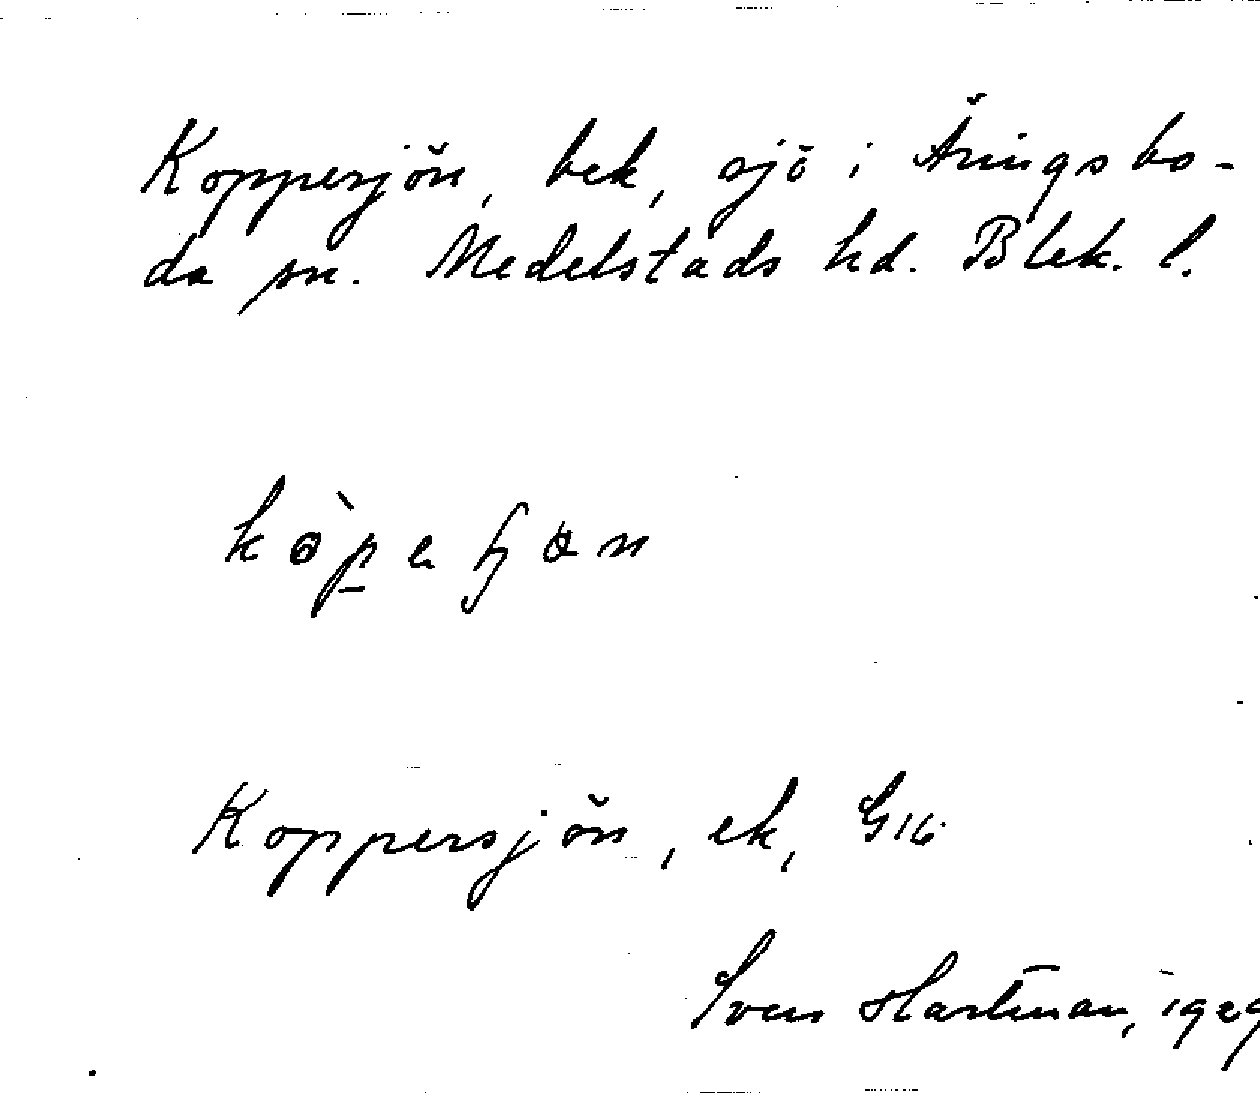 Koppersjön, bek, sjö i Åringsbo-
da sn. Medelstads hd. Blek. l.
Koppersjön, ek, G16
Sven Hartman, 1929